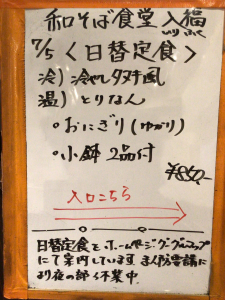 和そば食堂 入福
いり ふく
7/5 〈日替定食〉
冷) 冷やしタヌキ風
温) とりなん
○おにぎり(ゆかり)
○小鉢 2品付
¥850-
入口こちら
日替定食を、ホームページ・グーグルマップ
にて案内しています
より夜の部 休業中